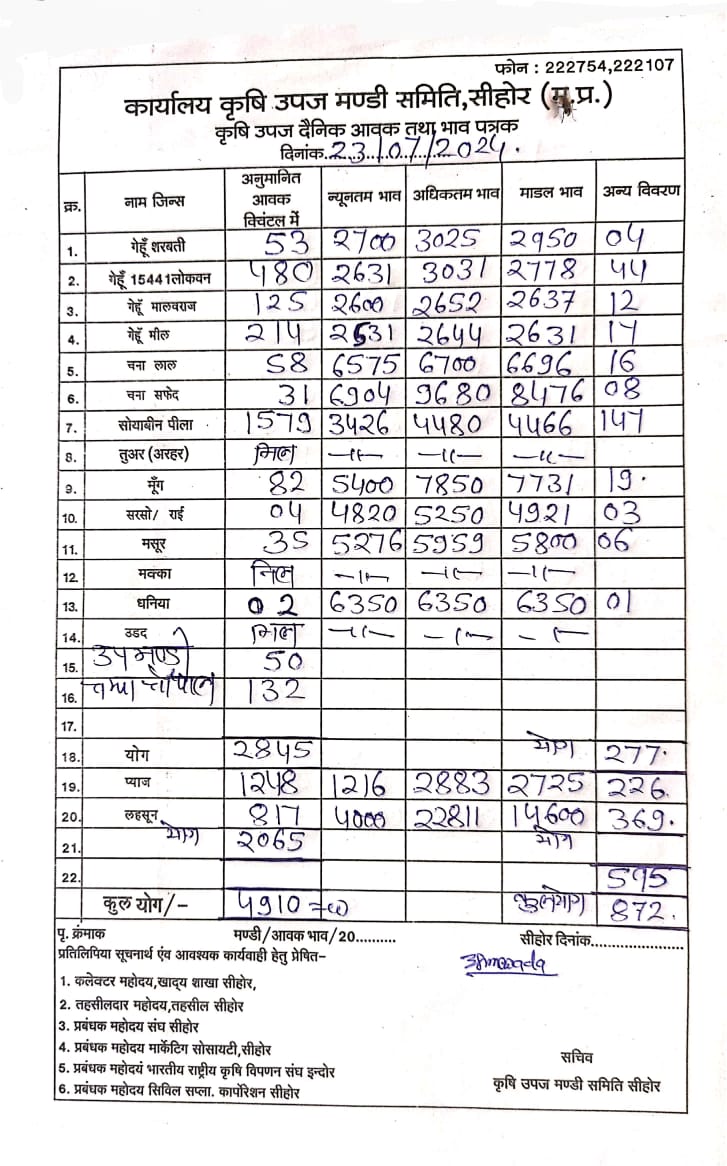 फोन : 222754,222107
कार्यालय कृषि उपज मण्डी समिति,सीहोर (म.प्र.)
कृषि उपज दैनिक आवक तथा भाव पत्रक
दिनांक..23/07/2024.
क्र. नाम जिन्स अनुमानित आवक विंचटल में न्यूनतम भाव अधिकतम भाव माडल भाव अन्य विवरण
1. गेहूँ शरबती 53 2700 3025 2950 04
2. गेहूँ 15441लोकवन 480 2631 3031 2778 44
3. गेहूँ मालवराज 125 2600 2652 2637 12
4. गेहूँ मील 214 2531 2644 2631 17
5. चना लाल 58 6575 6700 6696 16
6. चना सफेद 31 6904 9680 8476 08
7. सोयाबीन पीला 1579 3426 4480 4466 147
8. तुअर (अरहर) निल -11- -11- -11-
9. मूँग 82 5400 7850 7731 19.
10. सरसो/ राई 04 4820 5250 4921 03
11. मसूर 35 5276 5959 5800 06
12. मक्का निल -11- -11- -11-
13. धनिया 02 6350 6350 6350 01
14. उडद निल -11- -11- -11-
15. उपमण्डी 50
16. तथा चौपाल 132
17.
18. योग 2845 योग 277.
19. प्याज 1248 1216 2883 2725 226.
20. लहसून 817 4000 22811 14600 369.
21. योग 2065 योग
22. 595
कुल योग/- 4910 कुलयोग 872.
पृ. क्रंमाक मण्डी/आवक भाव/20.......... सीहोर दिनांक......................
प्रतिलिपिया सूचनार्थ एंव आवश्यक कार्यवाही हेतु प्रेषित-
1. कलेक्टर महोदय,खाद्य शाखा सीहोर,
2. तहसीलदार महोदय,तहसील सीहोर
3. प्रबंधक महोदय संघ सीहोर
4. प्रबंधक महोदय मार्केटिग सोसायटी,सीहोर
5. प्रबंधक महोदयं भारतीय राष्ट्रीय कृषि विपणन संघ इन्दोर
6. प्रबंधक महोदय सिविल सप्ला. कार्पोरेशन सीहोर
सचिव
कृषि उपज मण्डी समिति सीहोर